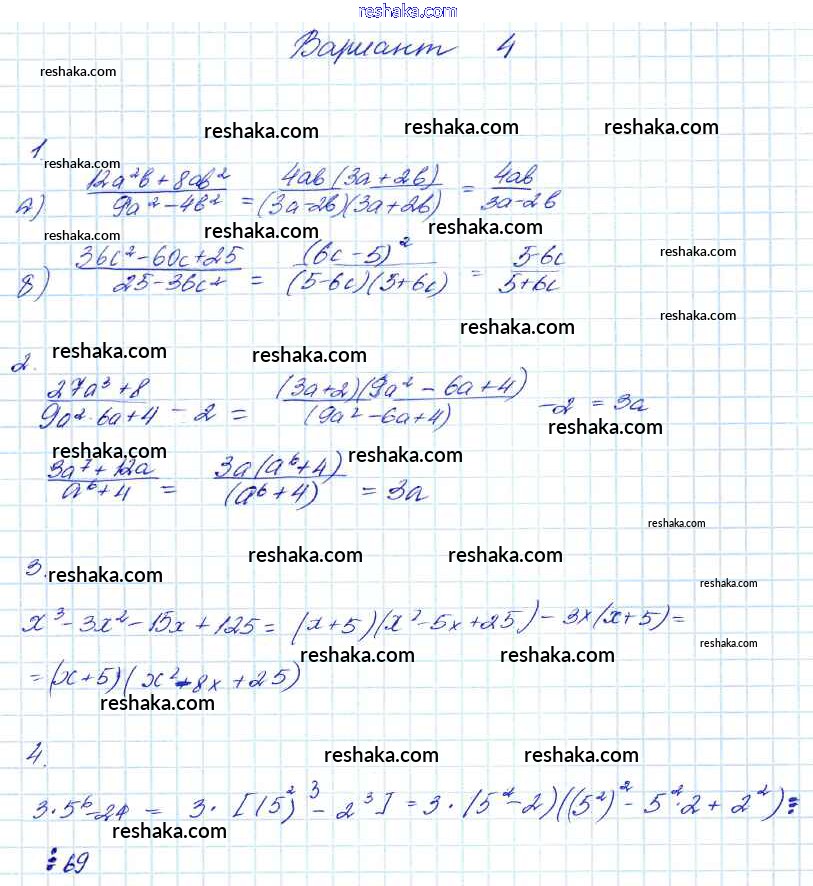 reshaka.com
Вариант 4
reshaka.com
reshaka.com reshaka.com reshaka.com
1.
reshaka.com
а) (12a²b + 8ab²)/(9a² - 4b²) = (4ab(3a + 2b))/((3a-2b)(3a+2b)) = 4ab/(3a-2b)
reshaka.com reshaka.com reshaka.com
reshaka.com
б) (36c² - 60c + 25)/(25 - 36c²) = (6c - 5)²/((5-6c)(5+6c)) = (5-6c)/(5+6c)
reshaka.com
reshaka.com
2.
reshaka.com reshaka.com
(27a³ + 8)/(9a² - 6a + 4) - 2 = ((3a+2)(9a² - 6a + 4))/(9a² - 6a + 4) - 2 = 3a
reshaka.com
reshaka.com reshaka.com
(3a⁷ + 12a)/(a⁶ + 4) = (3a(a⁶ + 4))/(a⁶ + 4) = 3a
reshaka.com
3.
reshaka.com reshaka.com reshaka.com
reshaka.com
x³ - 3x² - 15x + 125 = (x+5)(x² - 5x + 25) - 3x(x+5) =
reshaka.com
reshaka.com reshaka.com
= (x+5)(x² - 8x + 25)
reshaka.com
4.
reshaka.com reshaka.com
3·5⁶ - 24 = 3·[(5²)³ - 2³] = 3·(5² - 2)((5²)² - 5²·2 + 2²) ⋮
reshaka.com
⋮ 69